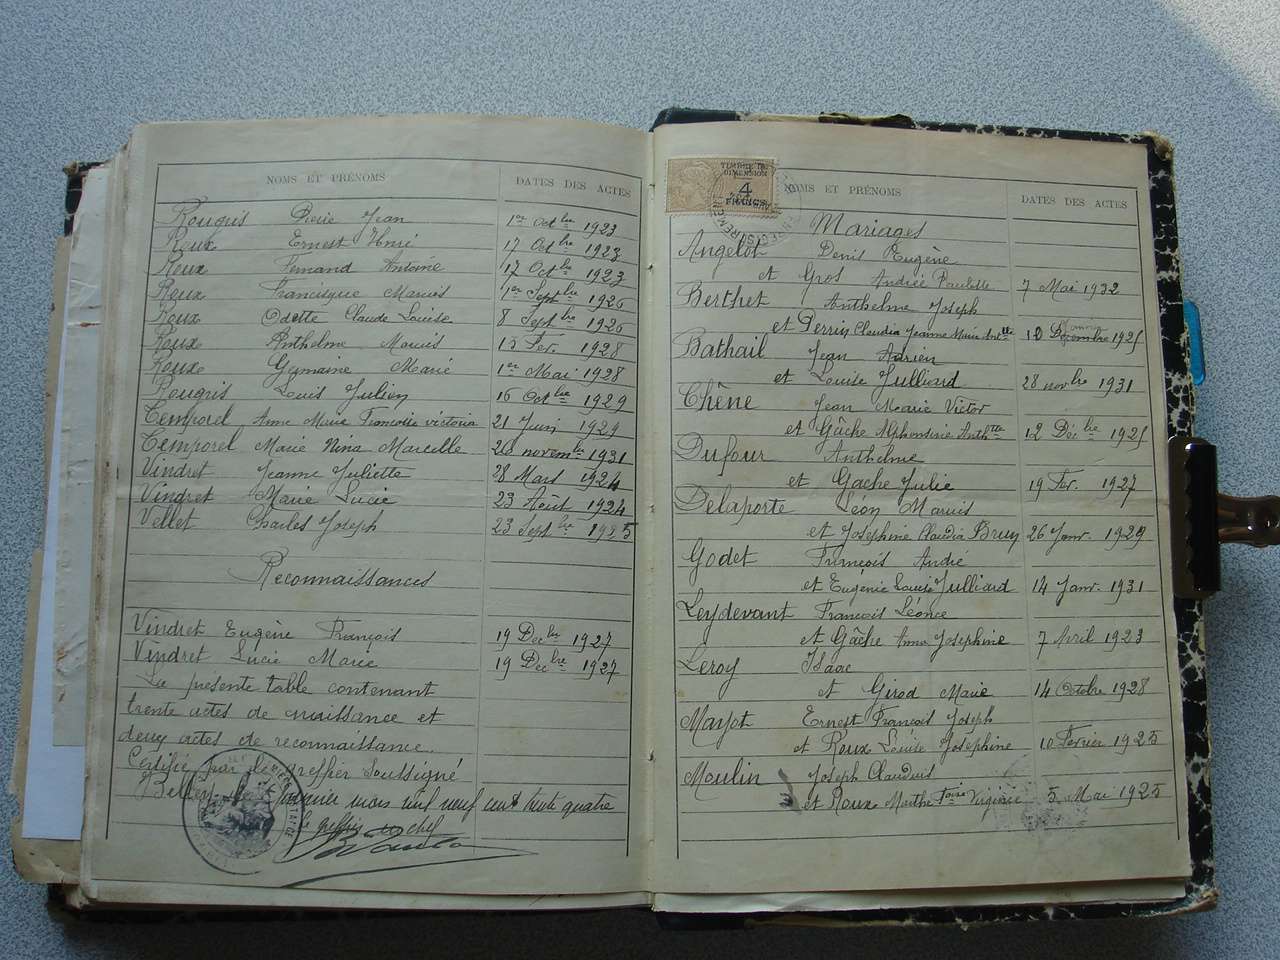 NOMS ET PRÉNOMS DATES DES ACTES
Rougris Pierre Jean 1er Octbre 1923
Roux Ernest Henri 17 Octbre 1923
Roux Fernand Antoine 17 Octbre 1923
Roux Francisque Marius 1er Septbre 1926
Roux Odette Claude Louise 8 Septbre 1926
Roux Anthelme Marius 15 Fer. 1928
Roux Germaine Marie 1er Mai 1928
Rougris Louis Julien 16 Octbre 1929
Temporel Anne Marie Francoise victoria 21 Juin 1929
Temporel Marie Nina Marcelle 20 novembre 1931
Vindret Jeanne Juliette 28 Mars 1924
Vindret Marie Lucie 23 Août 1924
Vellet Charles Joseph 23 Septbre 1925
Reconnaissances
Vindret Eugène François 19 Decbre 1927
Vindret Lucie Marie 19 Decbre 1927
La présente table contenant
trente actes de naissance et
deux actes de reconnaissance.
Certifié par le greffier soussigné
Belley, le premier mars mil neuf cent trente quatre
Le greffier en chef
TIMBRE DE
DIMENSION
4
FRANCS
NOMS ET PRÉNOMS DATES DES ACTES
Mariages
Angelot Denis Eugène
et Gros Andrée Paulette 7 Mai 1932
Berthet Anthelme Joseph
et Perrin Claudia Jeanne Marie Antte 10 1925
Bathail Jean Adrien
et Louise Julliard 28 novbre 1931
Chêne Jean Marie Victor
et Gâche Alphonsine Anthtte 12 Décbre 1925
Dufour Anthelme
et Gache Julie 19 Fer. 1927
Delaporte Léon Marius
et Joséphine Claudia Brun 26 Janr. 1929
Godet François André
et Eugénie Louise Julliard 14 Janr. 1931
Leydevant François Léonce
et Gâche Anna Joséphine 7 Avril 1923
Leroy Isaac
et Girod Marie 14 Octobre 1928
Mayot Ernest François Joseph
et Roux Louise Joséphine 10 Février 1925
Moulin Joseph Claudius
et Roux Marthe Virginie 5 Mai 1925